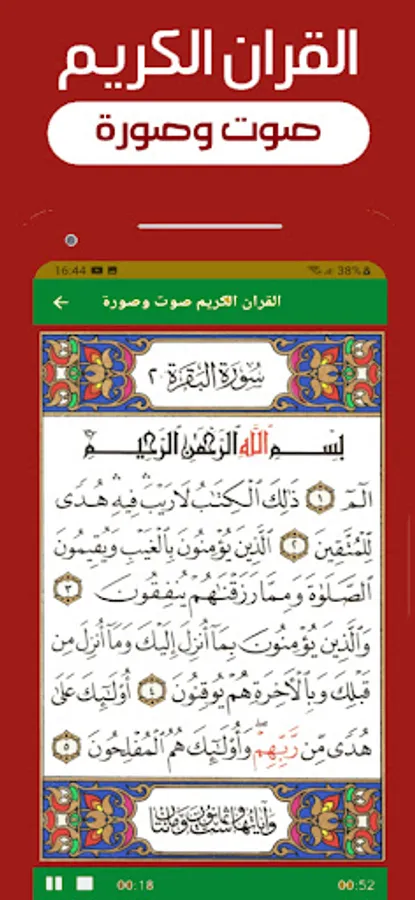 القران الكريم
صوت وصورة
16:44 38%
القران الكريم صوت وصورة
سُورَةُ البَقَرَة ٢
بِسْمِ اللَّهِ الرَّحْمَٰنِ الرَّحِيمِ
الٓمٓ ١ ذَٰلِكَ الْكِتَٰبُ لَا رَيْبَ ۛ فِيهِ ۛ هُدًى
لِّلْمُتَّقِينَ ٢ الَّذِينَ يُؤْمِنُونَ بِالْغَيْبِ وَيُقِيمُونَ
الصَّلَوٰةَ وَمِمَّا رَزَقْنَٰهُمْ يُنفِقُونَ ٣
وَالَّذِينَ يُؤْمِنُونَ بِمَا أُنزِلَ إِلَيْكَ وَمَا أُنزِلَ مِن
قَبْلِكَ وَبِالْآخِرَةِ هُمْ يُوقِنُونَ ٤ أُوْلَٰئِكَ عَلَىٰ
هُدًى مِّن رَّبِّهِمْ ۖ وَأُوْلَٰئِكَ هُمُ الْمُفْلِحُونَ ٥
وآياتها ست وثمانون ومائتان
00:18 00:52